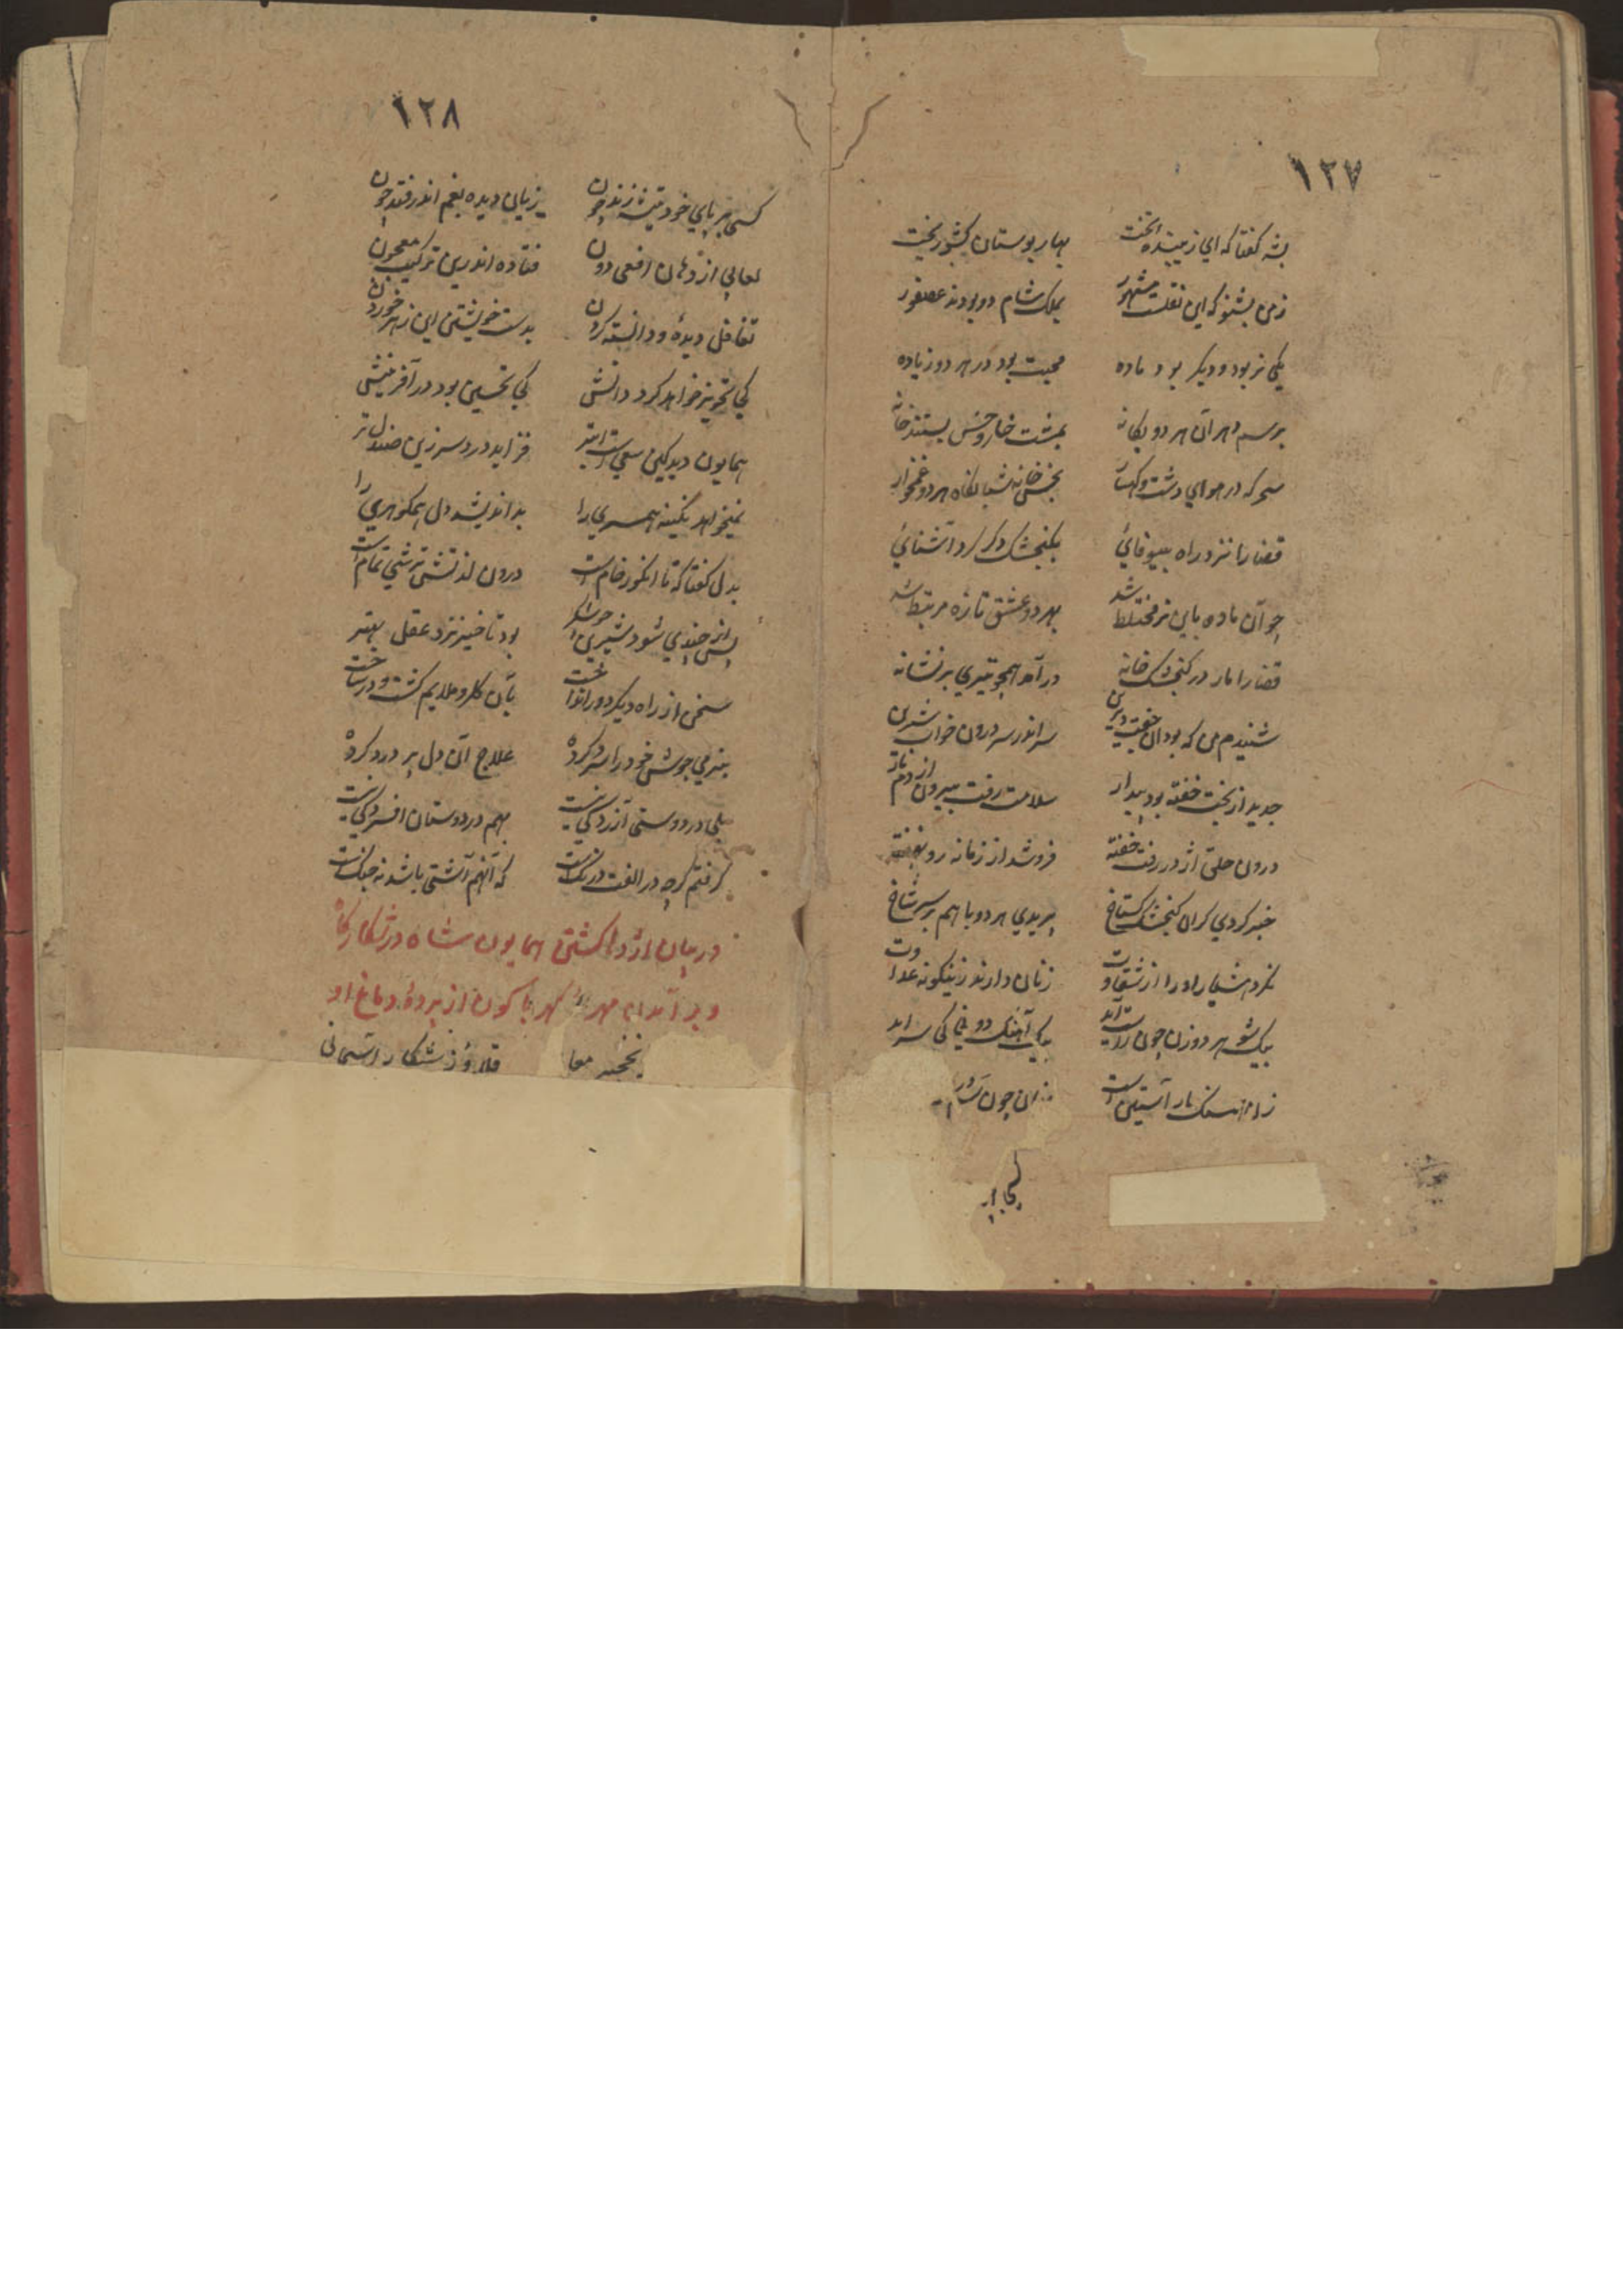 ١٢٧
بشه گفتا که ای زیبنده تخت بهار بوستان کشور بخت
ز من بشنو که این نقلست مشهور بملک شام دو بودند عصفور
یکی نر بود و دیگر بود ماده محبت بود در هر دو زیاده
برسم دهر آن هر دو یگانه بمشت خار و خس بستند خانه
سحر که در هوای دشت و کهسار بخس خانه شبانگاه هر دو غمخوار
قضا را نر ز راه بیوفائی بگنجشک دگر کرد آشنائی
چو آن ماده باین نر مختلط شد بهر دو عشق تازه مرتبط شد
قضا را مار در گنجشک خانه در آمد همچو تیری بر نشانه
شنیدم من که بود آن جفت دیرین سر اندر سر درون خواب شیرین
جدید از بخت خفته بود بیدار سلامت رفت بیرون از دم
درون حلق اژدر رفت خفته فرو شد از زمانه رو نهفته
خبر کردی گر آن گنجشک گستاخ پریدی هر دو با هم بر سر شاخ
نکرد هشیار او را از شقاوت زنان دارند زینگونه عداوت
بیک شوهر دو زن چون راست آید بیک آهنگ دو نی کی سراید
آستین است چون
١٢٨
کسی بر پای خود تیشه زند چون زیان دیده بغم اندر فتد چون
لعابی از دهان افعی دون فتاده اندرین ترکیب معجون
تغافل دیده و دانسته کردن بدست خویشتن این زهر خوردن
کی تجویز خواهد کرد دانش کی تحسین بود در آفرینش
همایون دید کین سعی است ابتر فزاید درد سر زین صندل تر
نمیخواهد نگینه همسری را بد اندیشد دل همگوهری را
بدل گفتا که تا انگور خام است درون لذتش ترشی تمام است
پس از چندی شود شیرین بود تاخیر نزد عقل بهتر
سخن از راه دیگر دور انداخت بآن گلرو ملایم گشت و در ساخت
بنرمی جوشش خود را سرد کرده علاج آن دل پر درد کرده
بلی در دوستی آزردگی نیست بهم در دوستان افسردگی نیست
گرفتم گرچه در الفت درنگ است که آنهم آشتی باشد نه جنگ است
در بیان اژدها کشتن همایون شاه در شکارگاه
و بر آمدن مهره کهربا گون از پرده دماغ او
شکار آسمانی